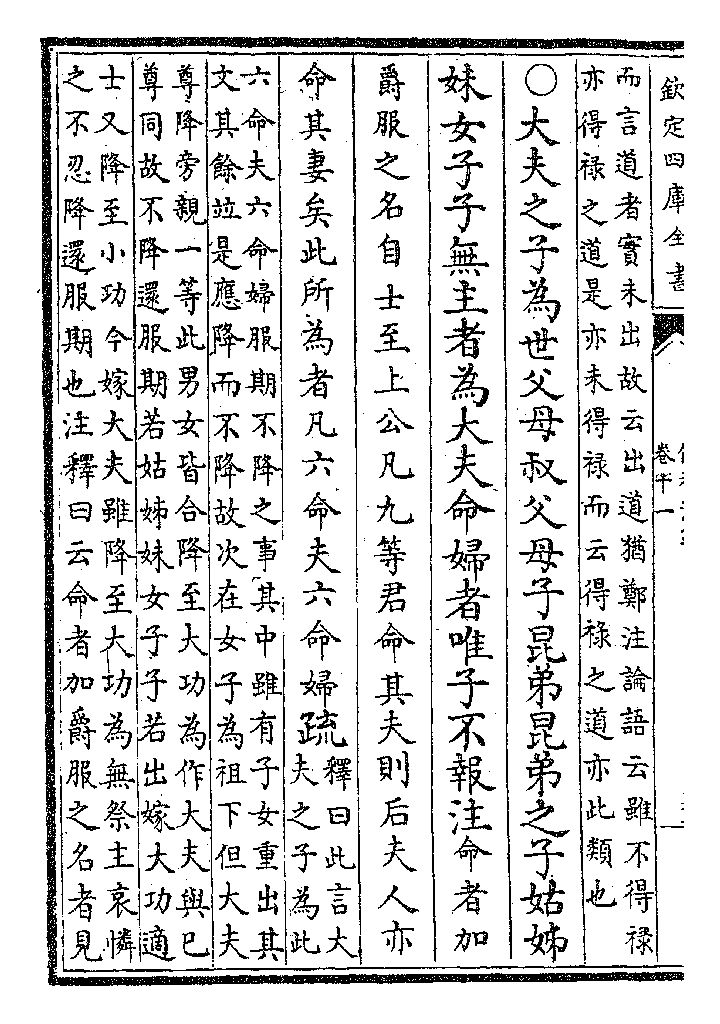 欽定四庫全書
卷十一
而言道者實未出故云出道猶鄭注論語云雖不得禄
亦得禄之道是亦未得禄而云得禄之道亦此類也
○大夫之子為世父母叔父母子昆弟昆弟之子姑姊
妹女子子無主者為大夫命婦者唯子不報注命者加
爵服之名自士至上公凡九等君命其夫則后夫人亦
命其妻矣此所為者凡六命夫六命婦疏釋曰此言大
夫之子為此
六命夫六命婦服期不降之事其中雖有子女重出其
文其餘竝是應降而不降故次在女子為祖下但大夫
尊降旁親一等此男女皆合降至大功為作大夫與已
尊同故不降還服期若姑姊妹女子子若出嫁大功適
士又降至小功今嫁大夫雖降至大功為無祭主哀憐
之不忍降還服期也注釋曰云命者加爵服之名者見